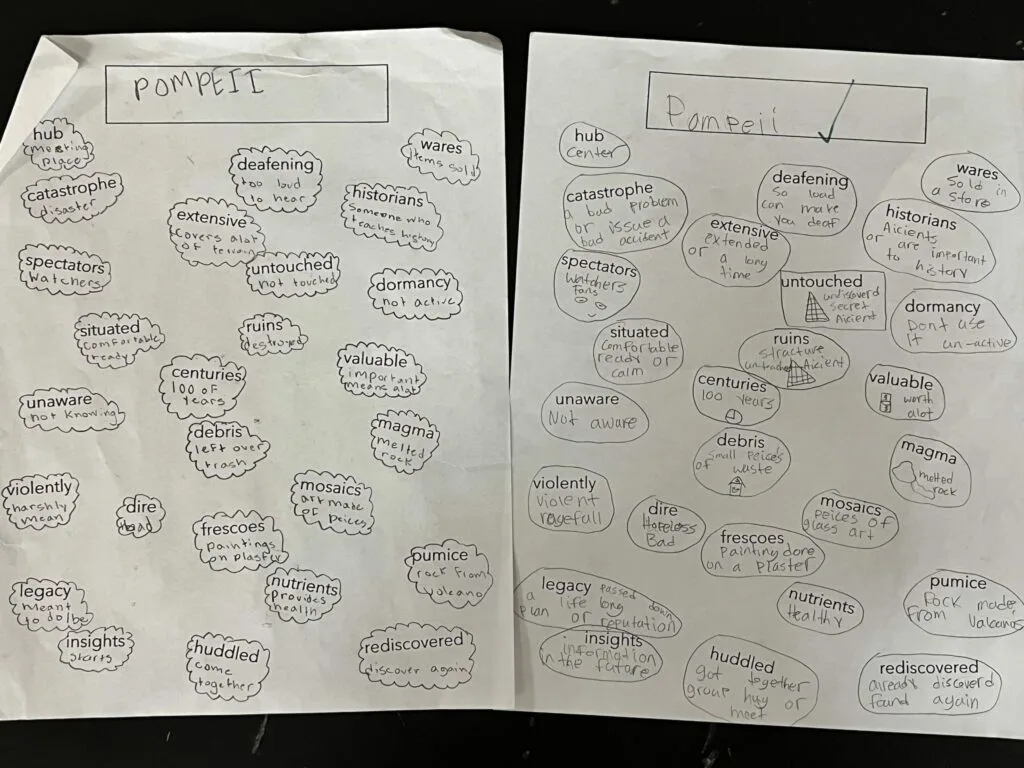 POMPEII
hub
meeting
place
wares
items sold
deafening
too loud
to hear
catastrophe
disaster
historians
Someone who
teaches history
extensive
Covers alot
of terrain
spectators
Watchers
untouched
not touched
dormancy
not active
situated
comfortable
ready
ruins
destroyed
valuable
important
means alot
centuries
100 of
years
unaware
not knowing
magma
melted
rock
debris
left over
trash
violently
harshly
mean
dire
Bad
mosaics
art made
of peices
frescoes
paintings
on plaster
pumice
rock from
volcano
nutrients
provides
health
legacy
meant
to do/be
insights
starts
huddled
come
together
rediscovered
discover again
Pompeii
hub
center
wares
Sold in
a store
deafening
so load
can make
you deaf
catastrophe
a bad problem
or issue a
bad accident
historians
Aicients
or are important
to history
extensive
extended
or a long
time
spectators
Watchers
Fans
untouched
undiscoverd
secret
Aicient
dormancy
Dont use
it un-active
situated
Comfortable
ready or
calm
ruins
structure
Aicient
centuries
100 years
valuable
worth
alot
unaware
Not aware
debris
small peices
of waste
magma
melted
rock
violently
violent
ragefull
dire
Hopeless
Bad
mosaics
peices of
glass art
frescoes
painting done
on a plaster
legacy passed down
a life long
plan or reputation
nutrients
Healthy
pumice
Rock made
From Valcanos
insights
information
in the futare
huddled
got together
group hug or
meet
rediscovered
already discoverd
found again